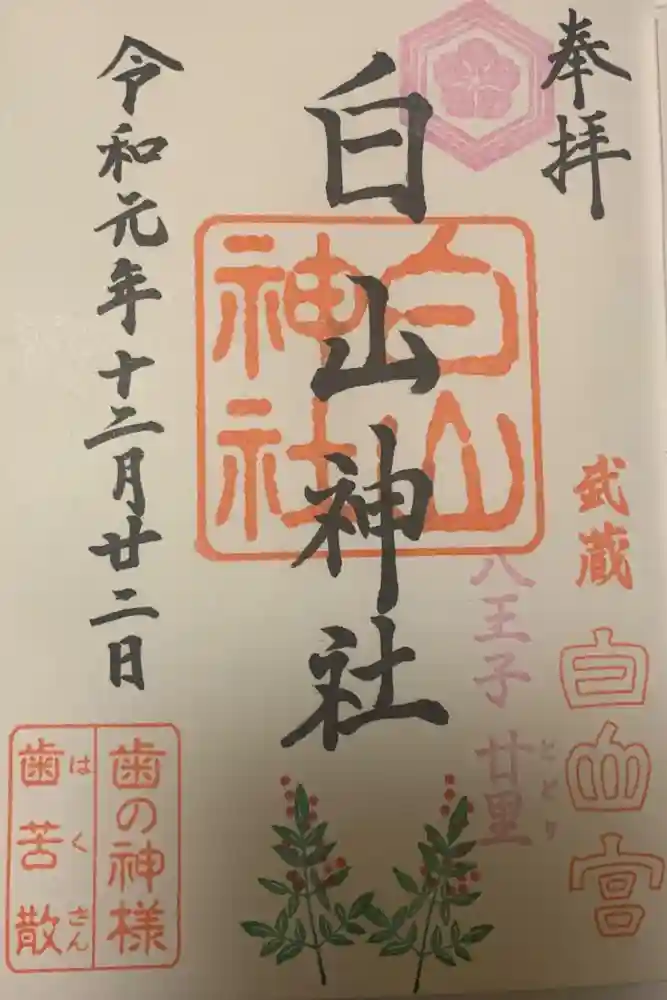 奉拝
武蔵
白山宮
八王子 廿里
とどり
白山神社
白山
神社
令和元年十二月廿二日
歯の神様
歯苦散
はくさん